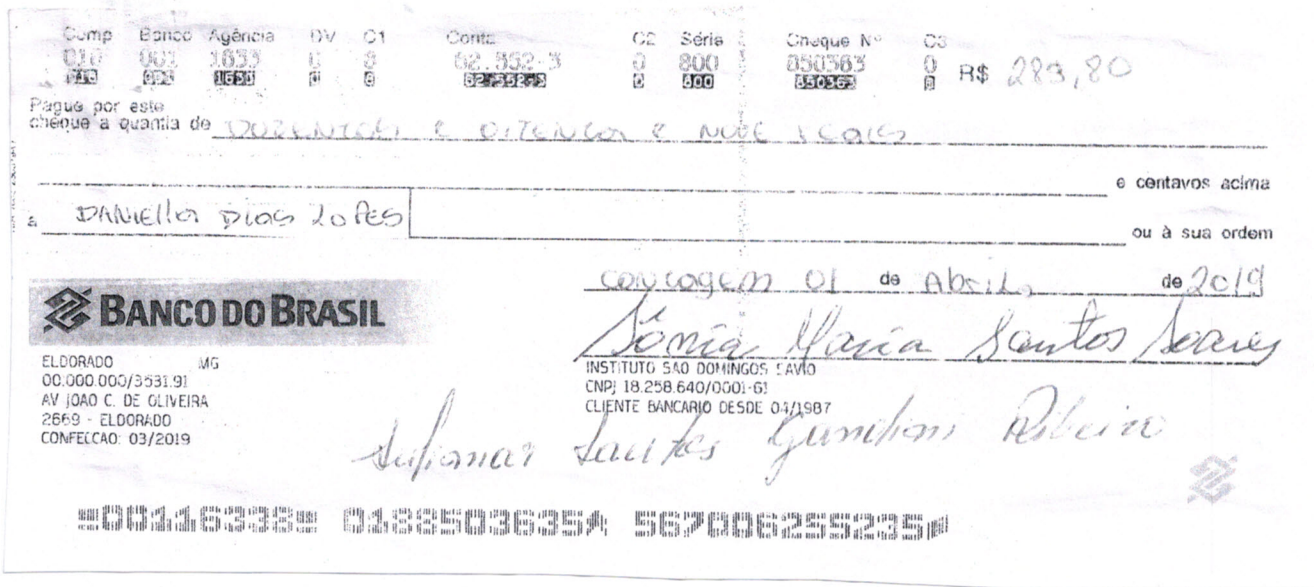 Comp Banco Agência DV C1 Conta C2 Série Cheque Nº C3
010 001 1633 0 8 62.552-3 0 800 850363 0 R$ 289,80
Pague por este
cheque a quantia de DUZENTOS E OITENTA E NOVE REAIS
e centavos acima
a DANIELLA DIAS LOPES
ou à sua ordem
CONTAGEM 01 de ABRIL de 2019
BANCO DO BRASIL
Sônia Maria Santos Soares
ELDORADO MG
00.000.000/3531.91
AV JOAO C. DE OLIVEIRA
2669 - ELDORADO
CONFECCAO: 03/2019
INSTITUTO SAO DOMINGOS SAVIO
CNPJ 18.258.640/0001-61
CLIENTE BANCARIO DESDE 04/1987
Santos Ribeiro